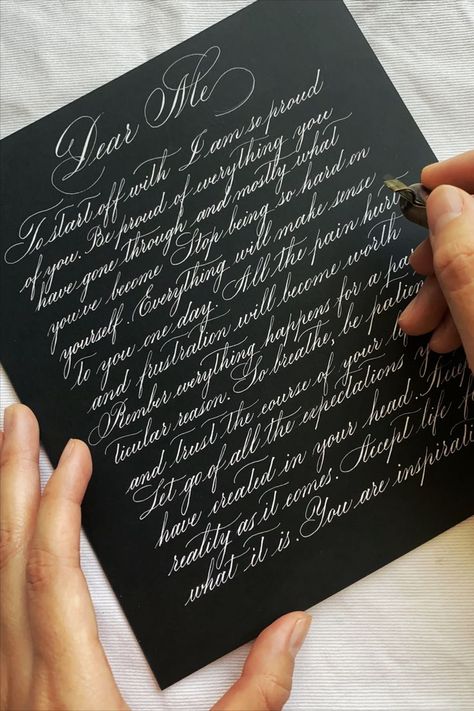 Dear Me
To start off with I am so proud
of you. Be proud of everything you
have gone through and mostly what
you've become Stop being so hard on
yourself. Everything will make sense
to you one day. All the pain hurt
and frustration will become worth
Rember everything happens for a par
ticular reason. So breathe, be patien
and trust the course of your
Let go of all the expectations y
have created in your head. Accep
reality as it comes. Accept life fo
what it is. You are inspirati